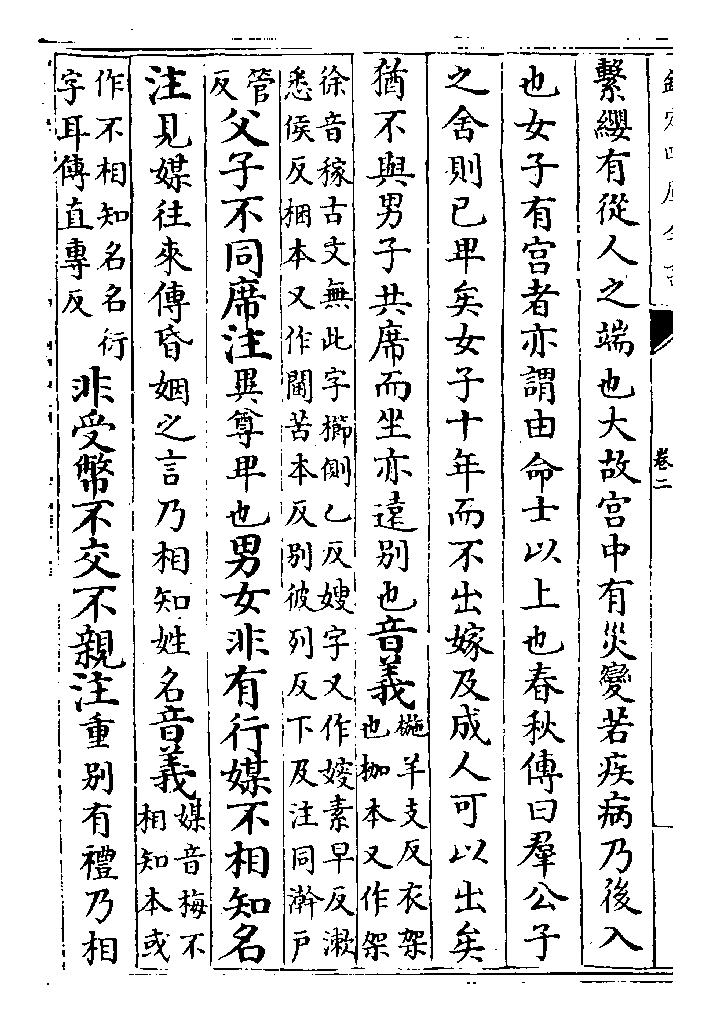 卷二
繫纓有從人之端也大故宫中有災變若疾病乃後入
也女子有宫者亦謂由命士以上也春秋傳曰羣公子
之舍則已卑矣女子十年而不出嫁及成人可以出矣
猶不與男子共席而坐亦逺别也音義椸羊支反衣架
也枷本又作架
徐音稼古文無此字櫛側乙反嫂字又作㛮素早反漱
悉侯反梱本又作閫苦本反别彼列反下及注同澣戶
管
反
父子不同席注異尊卑也男女非有行媒不相知名
注見媒往來傳昏姻之言乃相知姓名音義媒音梅不
相知本或
作不相知名名衍
字耳傳直專反
非受幣不交不親注重别有禮乃相